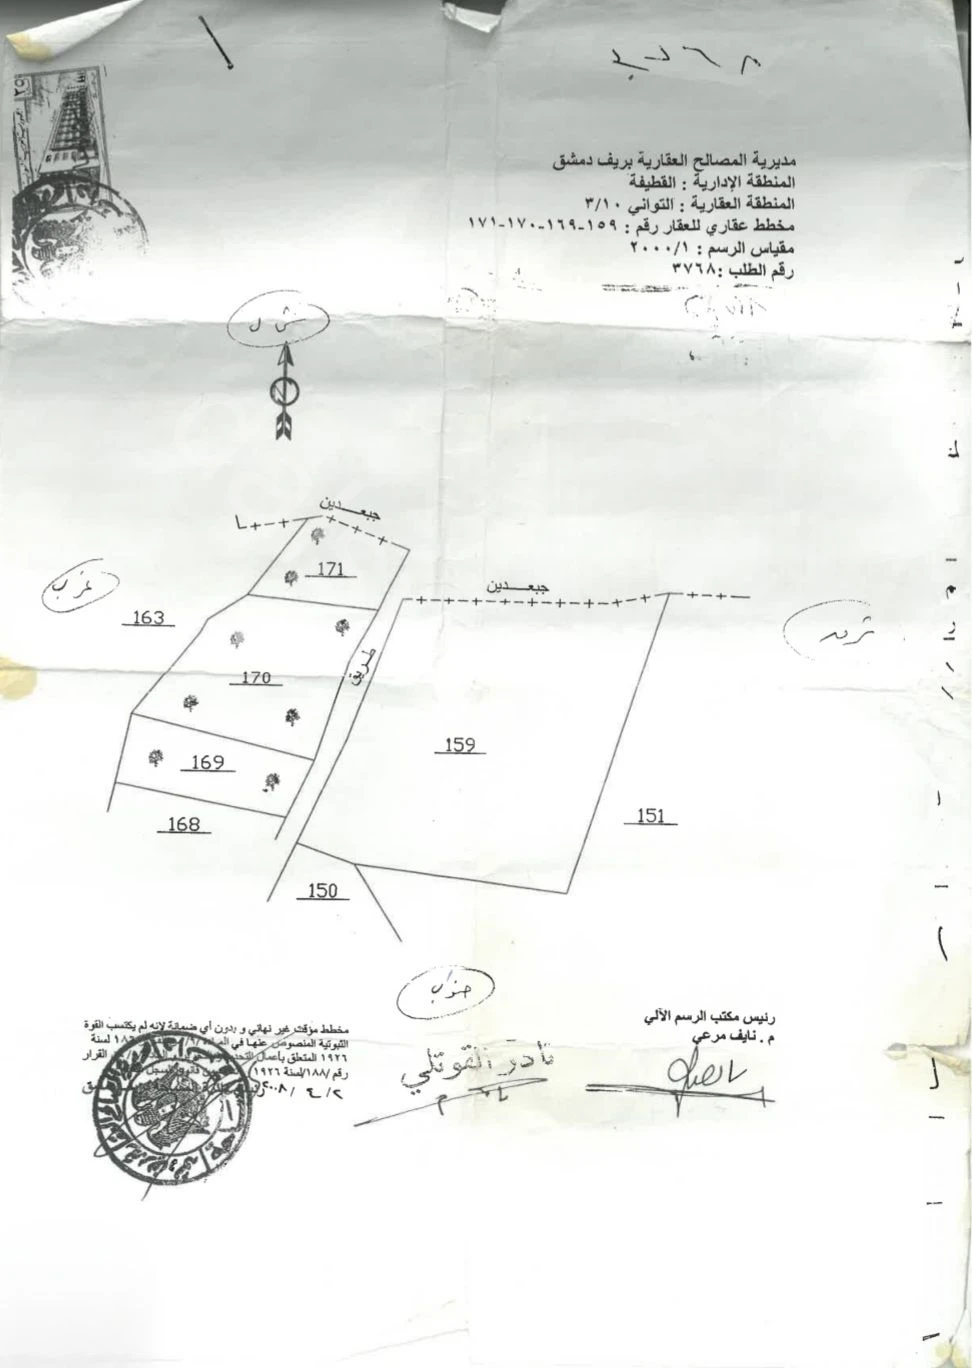 مديرية المصالح العقارية بريف دمشق
المنطقة الإدارية : القطيفة
المنطقة العقارية : التواني ٣/١٠
مخطط عقاري للعقار رقم : ١٥٩-١٦٩-١٧٠-١٧١
مقياس الرسم : ٢٠٠٠/١
رقم الطلب :٣٧٦٨
شمال
جبعدين
171
جبعدين
غرب
163
شرق
طريق
170
159
169
151
168
150
جنوب
رئيس مكتب الرسم الآلي
م . نايف مرعي
مخطط مؤقت غير نهائي و بدون أي ضمانة لانه لم يكتسب القوة
الثبوتية المنصوص عنها في لسنة
١٩٢٦ المتعلق بأعمال التحديد القرار
رقم /١٨٨/لسنة ١٩٢٦
٢٠٠٨/ ٤ /٢
نادر القوتلي